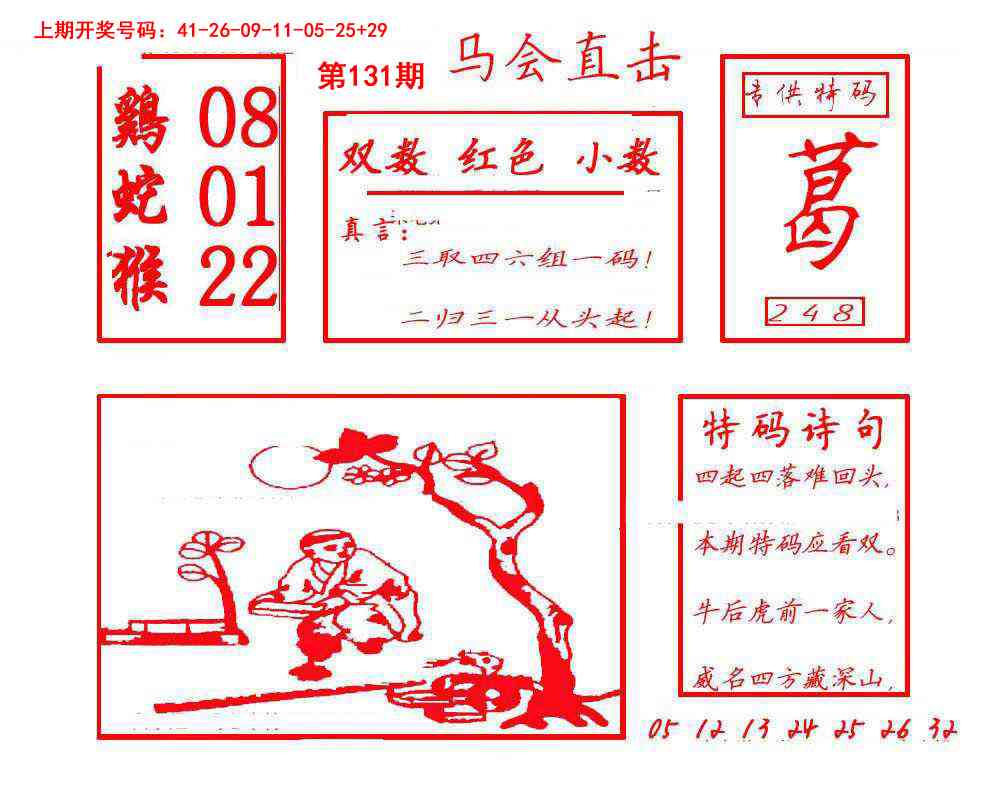 上期开奖号码：41-26-09-11-05-25+29
第131期
马会直击
鷄 08
蛇 01
猴 22
双数 红色 小数
真言：
三取四六组一码！
二归三一从头起！
专供特码
葛
248
特码诗句
四起四落难回头，
本期特码应看双。
牛后虎前一家人，
威名四方藏深山，
05 12 13 24 25 26 32